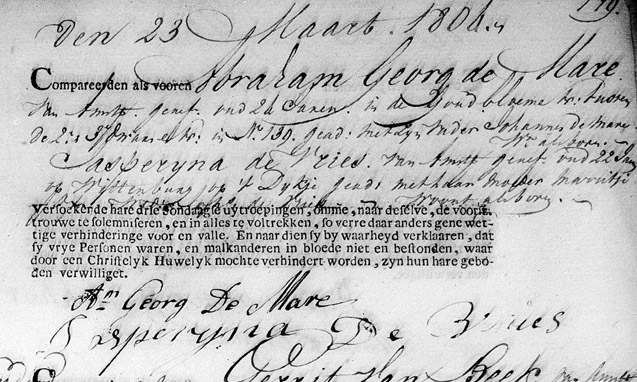 179.
Den 23 Maart. 1804.
Compareerden als vooren Abraham Georg de Mare
van Amst. geref. oud 24 Jaren. in de Goudbloems
de 2e: 3e dwars in No. 130. gead: met zyn Vader Johannes de Mare
Casperyna de Vries. van Amst geref. oud 22 Jar
op Wittenburg op 't Dykje geads met haar moeder Marritje
woont als boven.
Versoekende hare drie Sondaagse uytroepingen, omme, naar deselve, de voorsz.
trouwe te solemniseren, en in alles te voltrekken, so verre daar anders gene wet-
tige verhinderinge voor en valle. En naar dien sy by waarheyd verklaaren, dat
sy vrye Personen waren, en malkanderen in bloede niet en bestonden, waar
door een Christelyk Huwelyk mochte verhindert worden, zyn hun hare gebo-
den verwilliget.
Am Georg De Mare
Casperyna De Vries
Gerrit van Beek van Amst